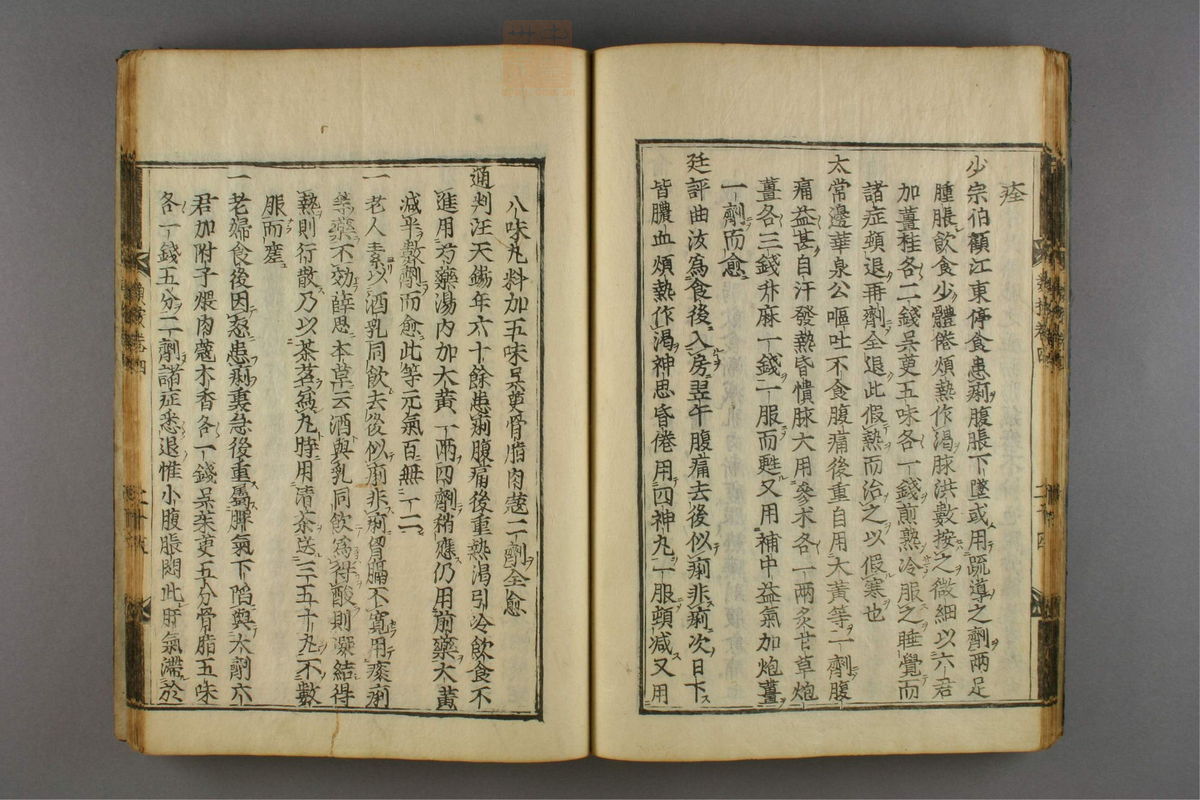 痊
少宗伯顧江東停食患痢腹脹下墜或用疏導之劑兩足
腫脹飲食少體倦煩熱作渴脉洪數按之微細以六君
加薑桂各二錢吳茰五味各一錢煎熟冷服之睡覺而
諸症頓退再劑全退此假熱而治之以假寒也
太常邊華泉公嘔吐不食腹痛後重自用大黃等一劑腹
痛益甚自汗發熱昏憒脉大用參朮各一兩炙甘草炮
薑各三錢升麻一錢一服而甦又用補中益氣加炮薑
一劑而愈
廷評曲汝爲食後入房翌午腹痛去後似痢非痢次日下
皆膿血煩熱作渴神思昏倦用四神丸一服頓減又用
八味丸料加五味吳茰骨脂肉蔻二劑全愈
通判汪天錫年六十餘患痢腹痛後重熱渴引冷飲食不
進用芍藥湯内加大黃一兩四劑稍應仍用前藥大黃
減半數劑而愈此等元氣百無一二
一老人素少酒乳同飲去後似痢非痢胷膈不寬用痰痢
等藥不効薛思本草云酒與乳同飲爲得酸則凝結得
熱則行散乃以茶茗爲丸時用清茶送三五十丸不數
服而瘥
一老婦食後因怒患痢裏急後重屬脾氣下陷與大劑六
君加附子煨肉蔻木香各一錢吳茱茰五分骨脂五味
各一錢五分二劑諸症悉退惟小腹脹悶此肝氣滯於